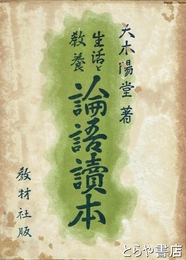 大木陽堂著
生活と
教養
論語讀本
教材社版
とらや書店